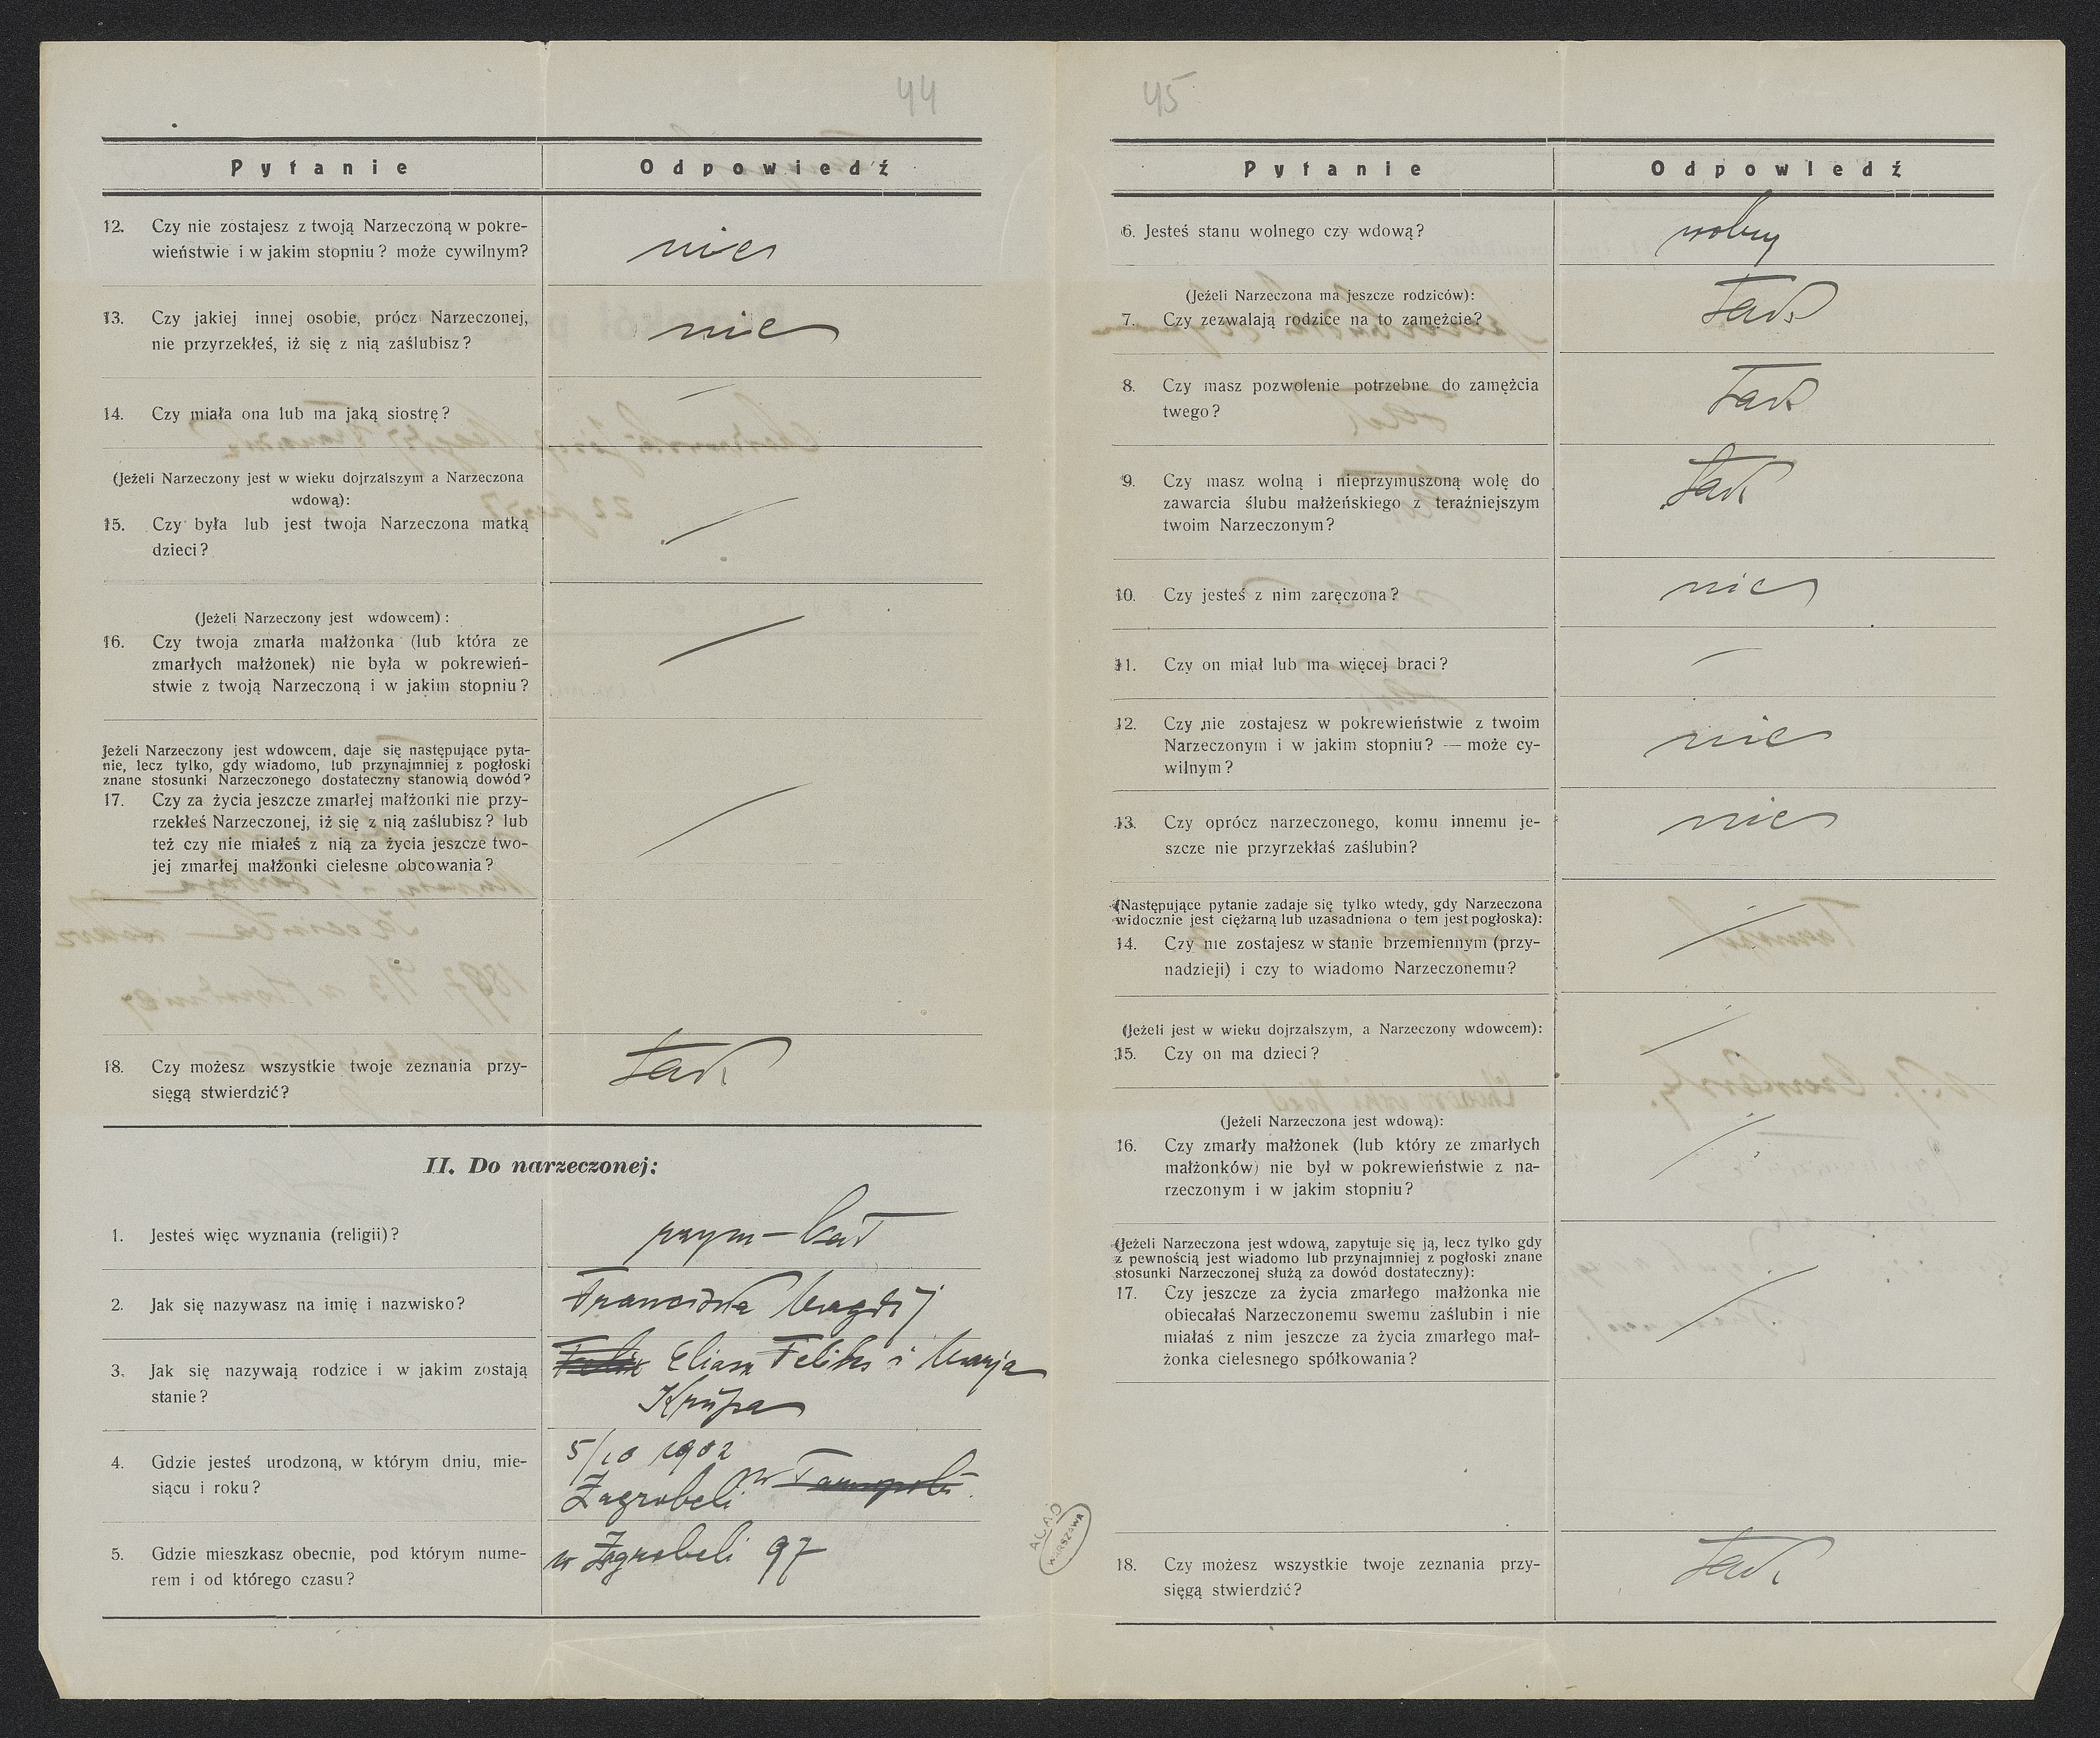 44
Pytanie Odpowiedź
12. Czy nie zostajesz z twoją Narzeczoną w pokre-
wieństwie i w jakim stopniu? może cywilnym?
nie
13. Czy jakiej innej osobie, prócz Narzeczonej,
nie przyrzekłeś, iż się z nią zaślubisz?
nie
14. Czy miała ona lub ma jaką siostrę?
—
(Jeżeli Narzeczony jest w wieku dojrzalszym a Narzeczona
wdową):
15. Czy była lub jest twoja Narzeczona matką
dzieci?
—
(Jeżeli Narzeczony jest wdowcem):
16. Czy twoja zmarła małżonka (lub która ze
zmarłych małżonek) nie była w pokrewień-
stwie z twoją Narzeczoną i w jakim stopniu?
—
Jeżeli Narzeczony jest wdowcem, daje się następujące pyta-
nie, lecz tylko, gdy wiadomo, lub przynajmniej z pogłoski
znane stosunki Narzeczonego dostateczny stanowią dowód?
17. Czy za życia jeszcze zmarłej małżonki nie przy-
rzekłeś Narzeczonej, iż się z nią zaślubisz? lub
też czy nie miałeś z nią za życia jeszcze two-
jej zmarłej małżonki cielesne obcowania?
—
18. Czy możesz wszystkie twoje zeznania przy-
sięgą stwierdzić?
Tak
II. Do narzeczonej:
1. Jesteś więc wyznania (religii)?
rzym-kat
2. Jak się nazywasz na imię i nazwisko?
Franciszka Magdij
3. Jak się nazywają rodzice i w jakim zostają
stanie?
Feliks i Marja
Krupa
4. Gdzie jesteś urodzoną, w którym dniu, mie-
siącu i roku?
5/10 1902
Zagrobeli
5. Gdzie mieszkasz obecnie, pod którym nume-
rem i od którego czasu?
w Zagrobeli 97
45
Pytanie Odpowiedź
6. Jesteś stanu wolnego czy wdową?
wolny
(Jeżeli Narzeczona ma jeszcze rodziców):
7. Czy zezwalają rodzice na to zamężcie?
Tak
8. Czy masz pozwolenie potrzebne do zamężcia
twego?
Tak
9. Czy masz wolną i nieprzymuszoną wolę do
zawarcia ślubu małżeńskiego z teraźniejszym
twoim Narzeczonym?
Tak
10. Czy jesteś z nim zaręczona?
nie
11. Czy on miał lub ma więcej braci?
—
12. Czy nie zostajesz w pokrewieństwie z twoim
Narzeczonym i w jakim stopniu? — może cy-
wilnym?
nie
13. Czy oprócz narzeczonego, komu innemu je-
szcze nie przyrzekłaś zaślubin?
nie
(Następujące pytanie zadaje się tylko wtedy, gdy Narzeczona
widocznie jest ciężarną lub uzasadniona o tem jest pogłoska):
14. Czy nie zostajesz w stanie brzemiennym (przy-
nadzieji) i czy to wiadomo Narzeczonemu?
—
(Jeżeli jest w wieku dojrzalszym, a Narzeczony wdowcem):
15. Czy on ma dzieci?
—
(Jeżeli Narzeczona jest wdową):
16. Czy zmarły małżonek (lub który ze zmarłych
małżonków) nie był w pokrewieństwie z na-
rzeczonym i w jakim stopniu?
—
(Jeżeli Narzeczona jest wdową, zapytuje się ją, lecz tylko gdy
z pewnością jest wiadomo lub przynajmniej z pogłoski znane
stosunki Narzeczonej służą za dowód dostateczny):
17. Czy jeszcze za życia zmarłego małżonka nie
obiecałaś Narzeczonemu swemu zaślubin i nie
miałaś z nim jeszcze za życia zmarłego mał-
żonka cielesnego spółkowania?
—
18. Czy możesz wszystkie twoje zeznania przy-
sięgą stwierdzić?
Tak
AGAD
WARSZAWA